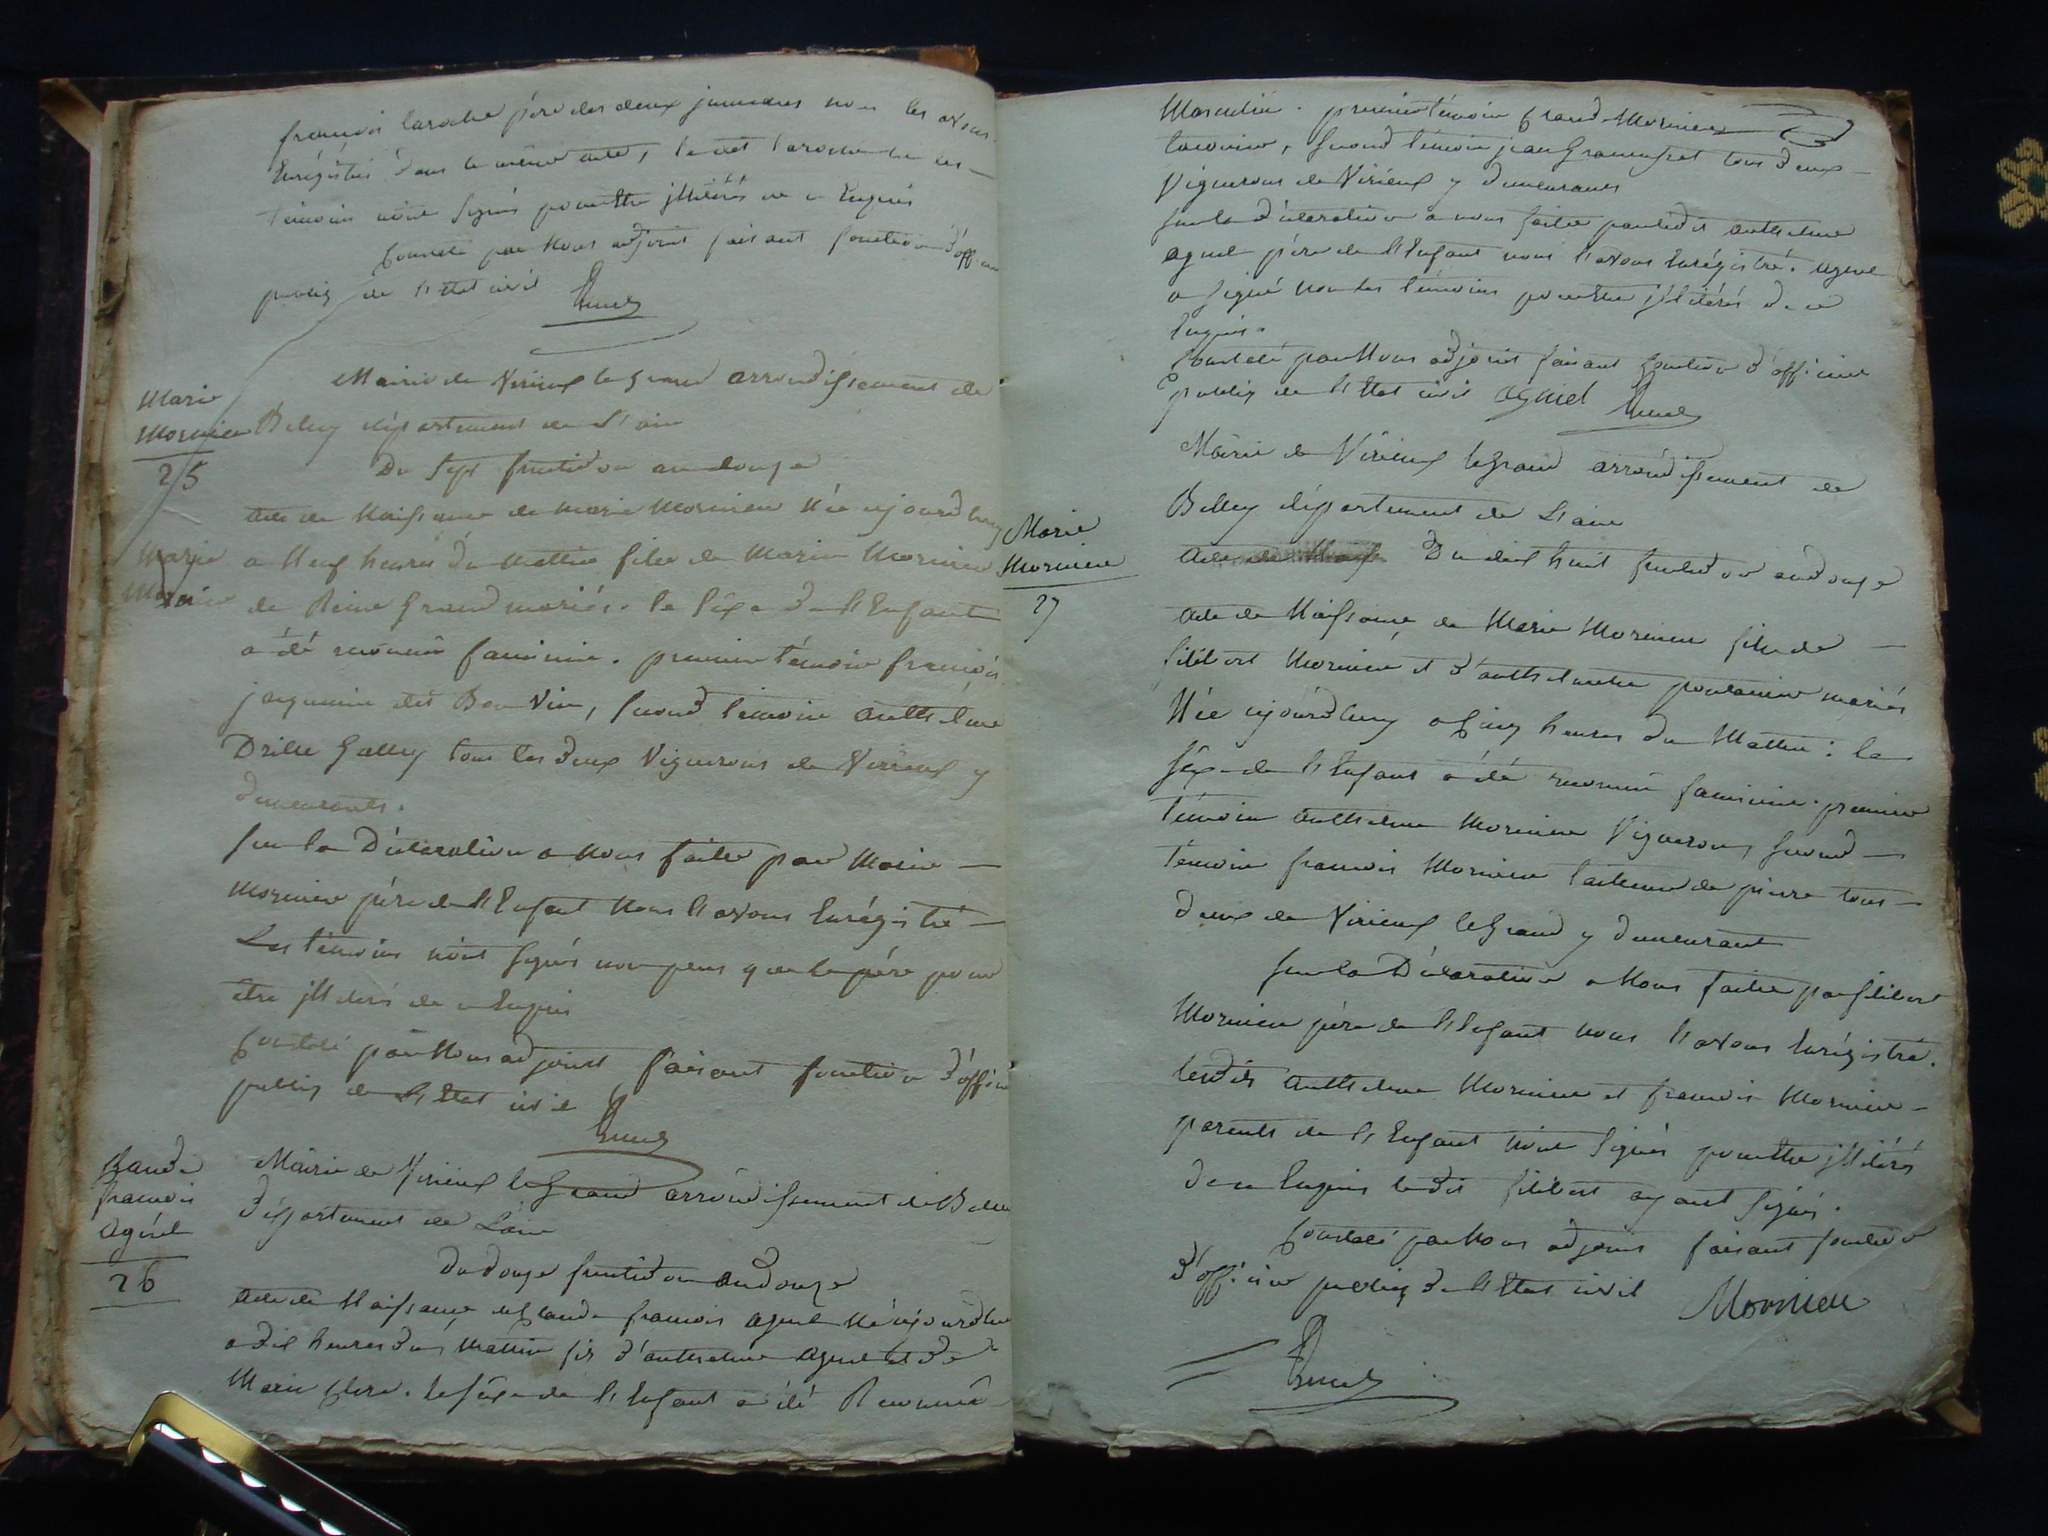 françois laroche père des deux jumeaux nous les avons
Enrégistrés dans le même acte, le dit laroche les
témoins n'ont signés pour être illitérés de ce Requis
Constaté par Nous adjoint faisant fonction d'officier
public de l'Etat civil
Marie
Mornieu
25
Mairie de Virieux le Grand arrondissement de
Belley département de L'ain
Du Sept fructidor an douze
Acte de Naissance de Marie Mornieu Née ajourd'huy
Marie
Mornieu
a Neuf heures du Mattin fille de Marin Mornieu
de Reine Grand mariés. le sèxe de l'Enfant
a été reconnû faminin. premier témoin françois
jacquemin dit Bon Vin, second témoin Anthelme
Drille Galley tous les deux Vignerons de Virieux y
demeurants.
Sur la Déclaration a Nous faitte par Marin
Mornieu père de l'Enfant Nous l'avons Enrégistré
Les témoins n'ont signés non plus que le père pour
être illiterés de ce Enquis
Constaté par Nous adjoint faisant fonction d'officier
public de L'Etat civil
Claude
francois
agniel
26
Mairie de Virieux le Grand arrondissement de Belley
Département de L'ain
Du douze fructidor an Douze
Acte de Naissance de Claude francois agniel Né ajourd'huy
a dix heures du Mattin fils d'anthelme agniel et de
Marie Clerc. le sèxe de l'Enfant a été Reconnû
Masculin. premier témoin Claude Mornieu
second témoin jean tous deux
Vignerons de Virieux y demeurants
sur la déclaration a nous faitte par ledit anthelme
agniel père de l'Enfant nous l'avons Enrégistré. agniel
a signé non les témoins pour être illitérés de ce
Enquis.
Constaté par Nous adjoint faisant fonction d'officier
public de l'Etat civil agniel
Mairie de Virieux le Grand arrondissement de
Belley département de L'ain
Marie
Mornieu
27
Acte de Naiss Du dix huit fructidor an douze
Acte de Naissance de Marie Mornieu fille de
filibert Mornieu et d'anthelmette mariés
Née ajourd'huy a Cinq heures du Mattin: le
sèxe de l'Enfant a été reconnû faminin. premier
témoin Anthelme Mornieu Vigneron, second
témoin françois Mornieu tailleur de pierre tous
deux de Virieux le Grand y demeurant
Sur la Déclaration a Nous faitte par filibert
Mornieu père de l'Enfant nous l'avons Enrégistré.
lesdits Anthelme Mornieu et francois Mornieu
parents de l'Enfant n'ont signés pour être illitérés
de ce Enquis ledit filibert ayant signé.
Constaté par Nous adjoint faisant fonction
d'officier public de l'Etat civil Mornieu